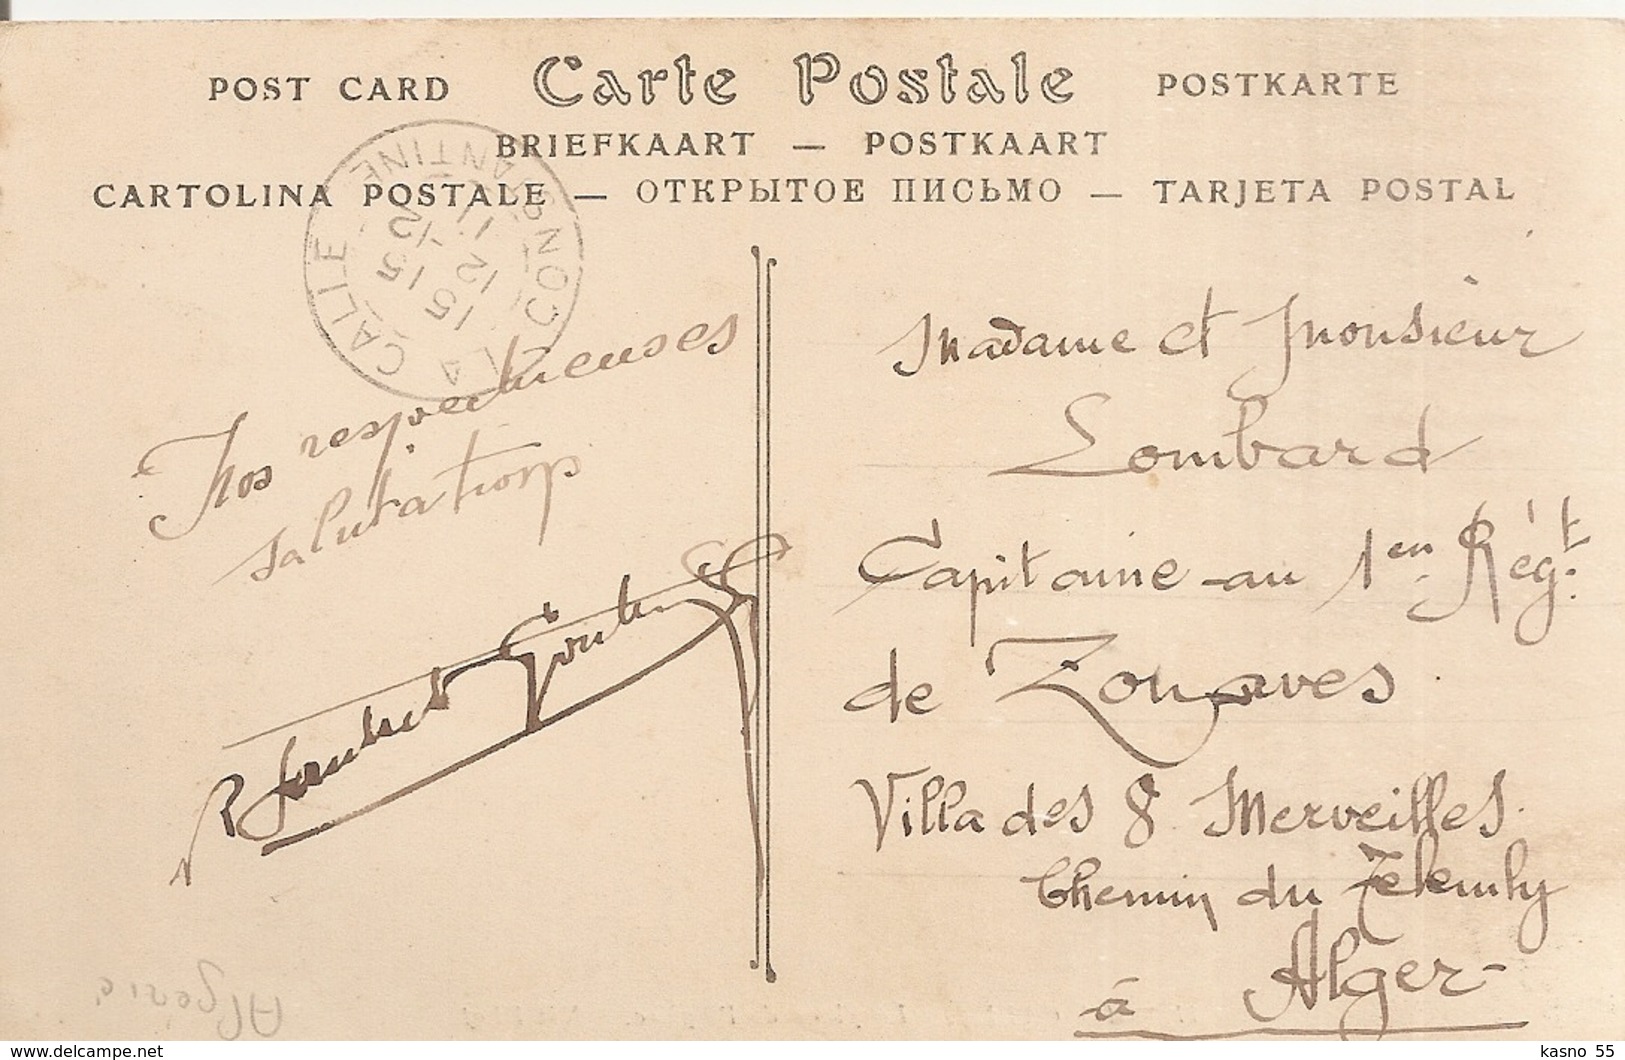 POST CARD Carte Postale POSTKARTE
BRIEFKAART — POSTKAART
CARTOLINA POSTALE — ОТКРЫТОЕ ПИСЬМО — TARJETA POSTAL
LA CALLE CONSTANTINE
15 15
12 12
11
Nos respectueuses
salutations
Madame et Monsieur
Lombard
Capitaine au 1er Régt
de Zouaves
Villa des 8 Merveilles
Chemin du Telemly
à Alger
Algérie
kasno 55